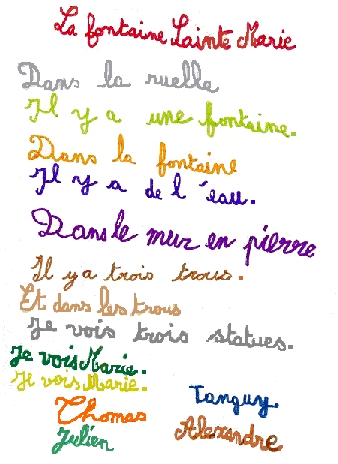 La fontaine Sainte Marie
Dans la ruelle
Il y a une fontaine.
Dans la fontaine
Il y a de l'eau.
Dans le mur en pierre
Il y a trois trous.
Et dans les trous
Je vois trois statues.
Je vois Marie.
Je vois Marie.
Thomas Tanguy.
Julien Alexandre